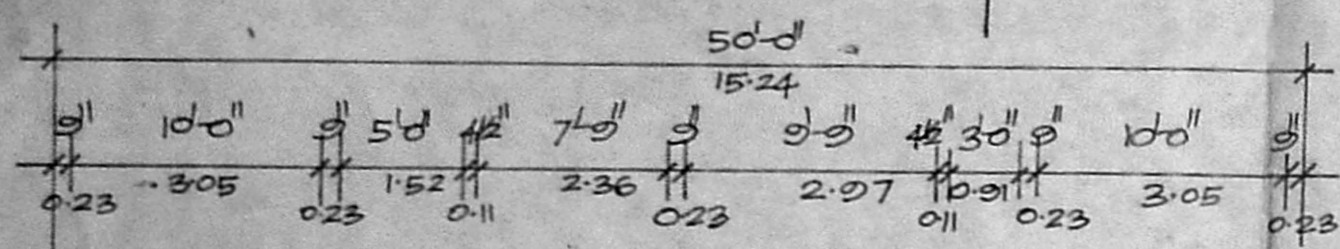 50'-0"
15.24
9" 10'-0" 9" 5'-0" 4½" 7'-9" 9" 9'-9" 4½" 3'-0" 9" 10'-0" 9"
0.23 3.05 0.23 1.52 0.11 2.36 0.23 2.97 0.11 0.91 0.23 3.05 0.23